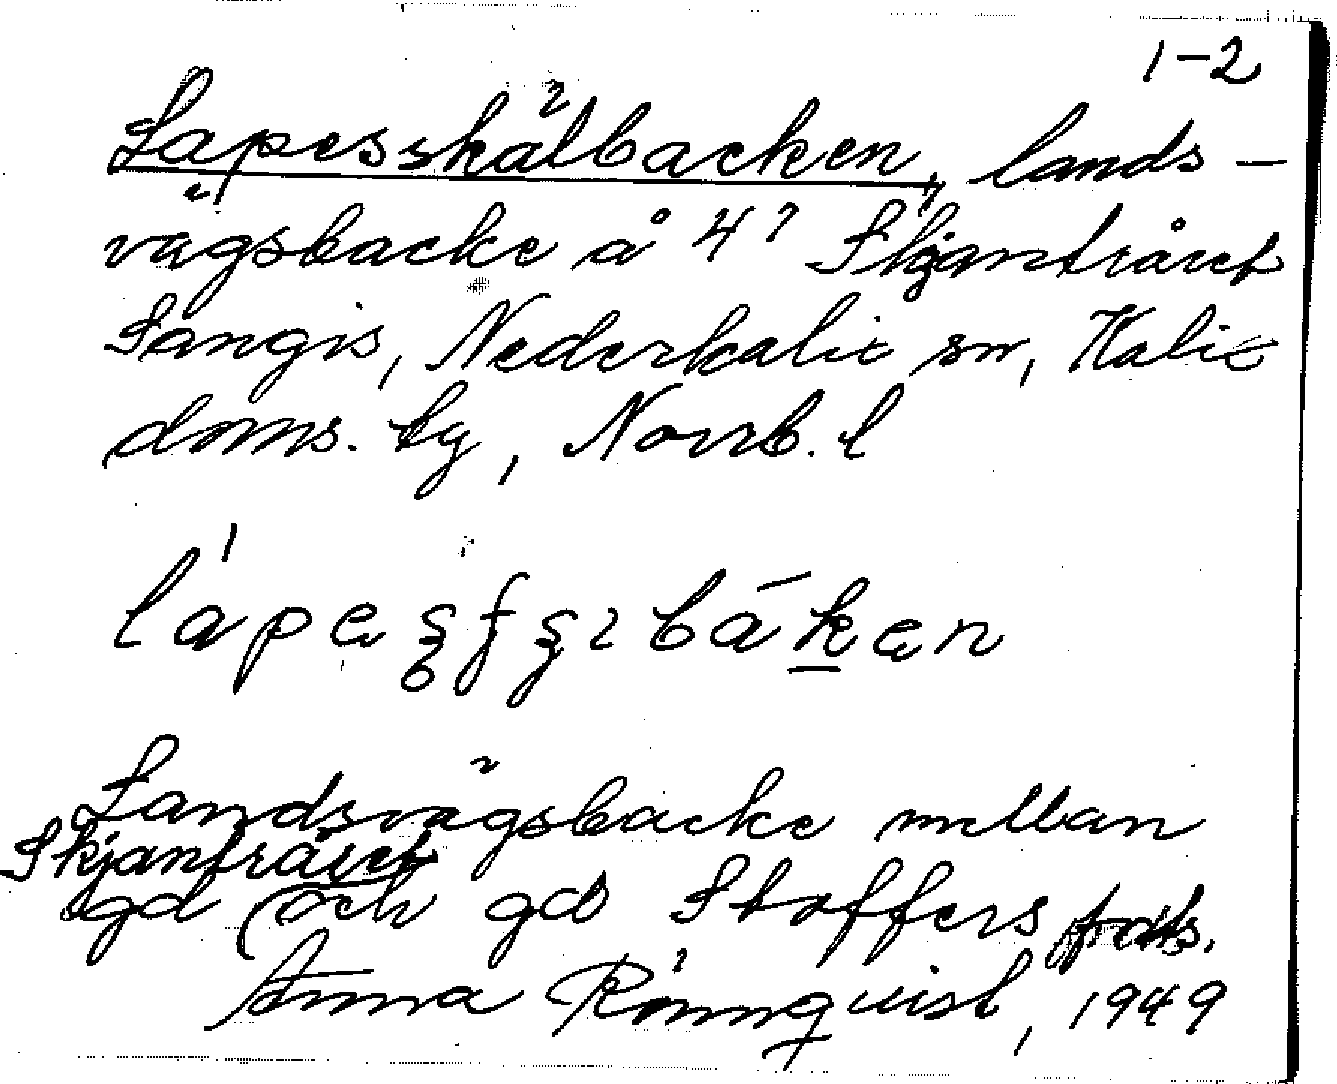 1-2
Lapesskälbacken, lands-
vägsbacke å 4⁷ Skjanträsket
Sangis, Nederkalix sn, Kalix
doms. tg, Norrb. l
Landsvägsbacke mellan
Skjanträsket
gd och gd Stoffers
Anna Rönnquist, 1949